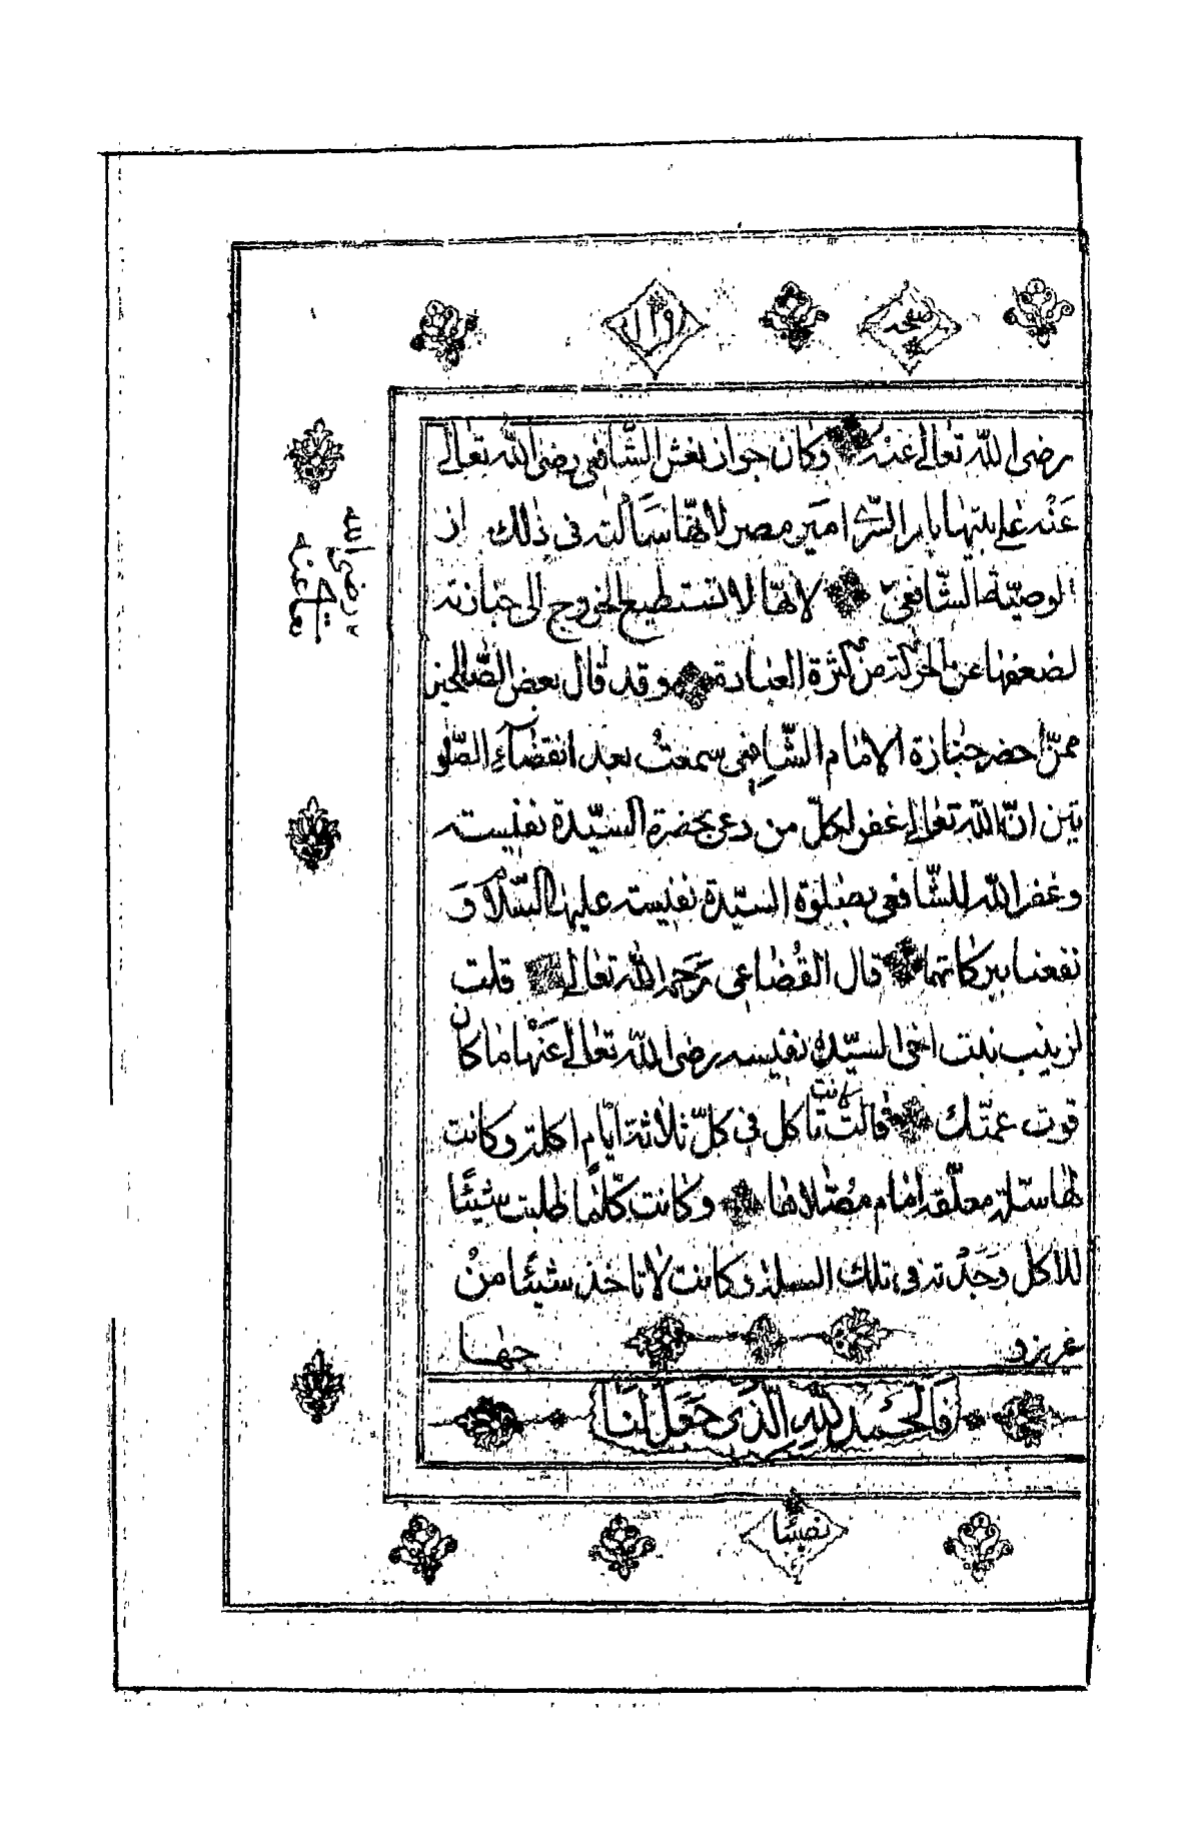 صحيفه
رضى الله تعالى عنه وكان جواز نعش الشافعى رضى الله تعالى
عنه على بيتها بامر السرّى امير مصر لانها سالته فى ذلك از
لوصيّة الشافعى ٢ لانها لا تستطيع الخروج الى جنازته
لضعفها عن الحركة من كثرة العبادة وقد قال بعض الصّالحين
ممّن حضر جنازة الامام الشّافعى سمعت بعد انقضآء الصّلو
تين انّ الله تعالى غفر لكلّ من دعى بحضرة السيّدة نفيسته
وغفر الله للشّافعى بصلوة السيّدة نفيسته عليها السّلام و
نفعنا ببركاتهما قال القُضاعى رَحمه الله تعالى قلت
لزينب بنت اخى السيّدة نفيسه رضى الله تعالى عَنْها ما كان
قوت عمّتك قالتْ كانت تاكل فى كلّ ثلاثة ايّام اكلة وكانت
لها سلّة معلّقة امام مُصّلاها وكانت كلّما طلبت شيئًا
للاكل وَجَدْته فى تلك السلة وكانت لا تاخذ شيئًا منْ
غيرزو جها
فَالحَمْد لله الَّذى جَعَلَ لَنَا
نصيبًا
٢ رضى الله
تعا عنه